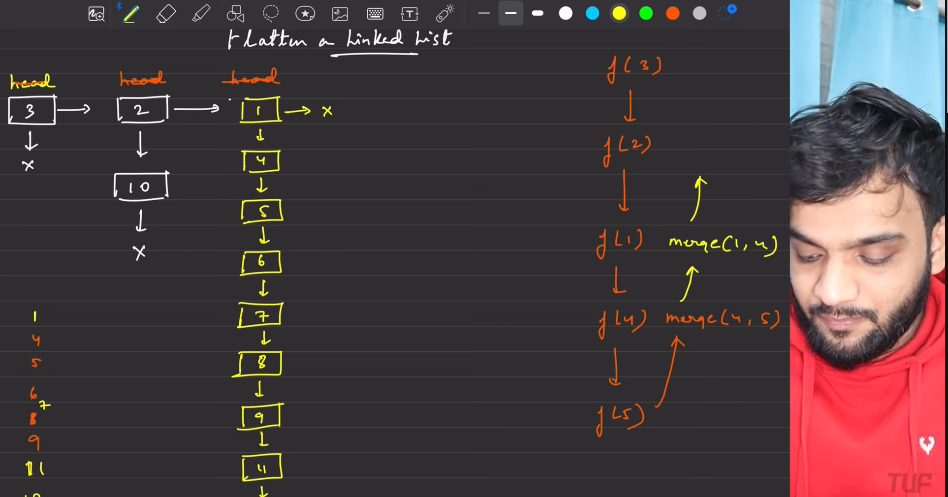 Flatten a Linked List
head head head
3 2 1 x
x
10
x
4
5
6
7
8
9
11
1
4
5
6
7
8
9
11
10
f(3)
f(2)
f(1) merge(1,4)
f(4) merge(4,5)
f(5)
TUF